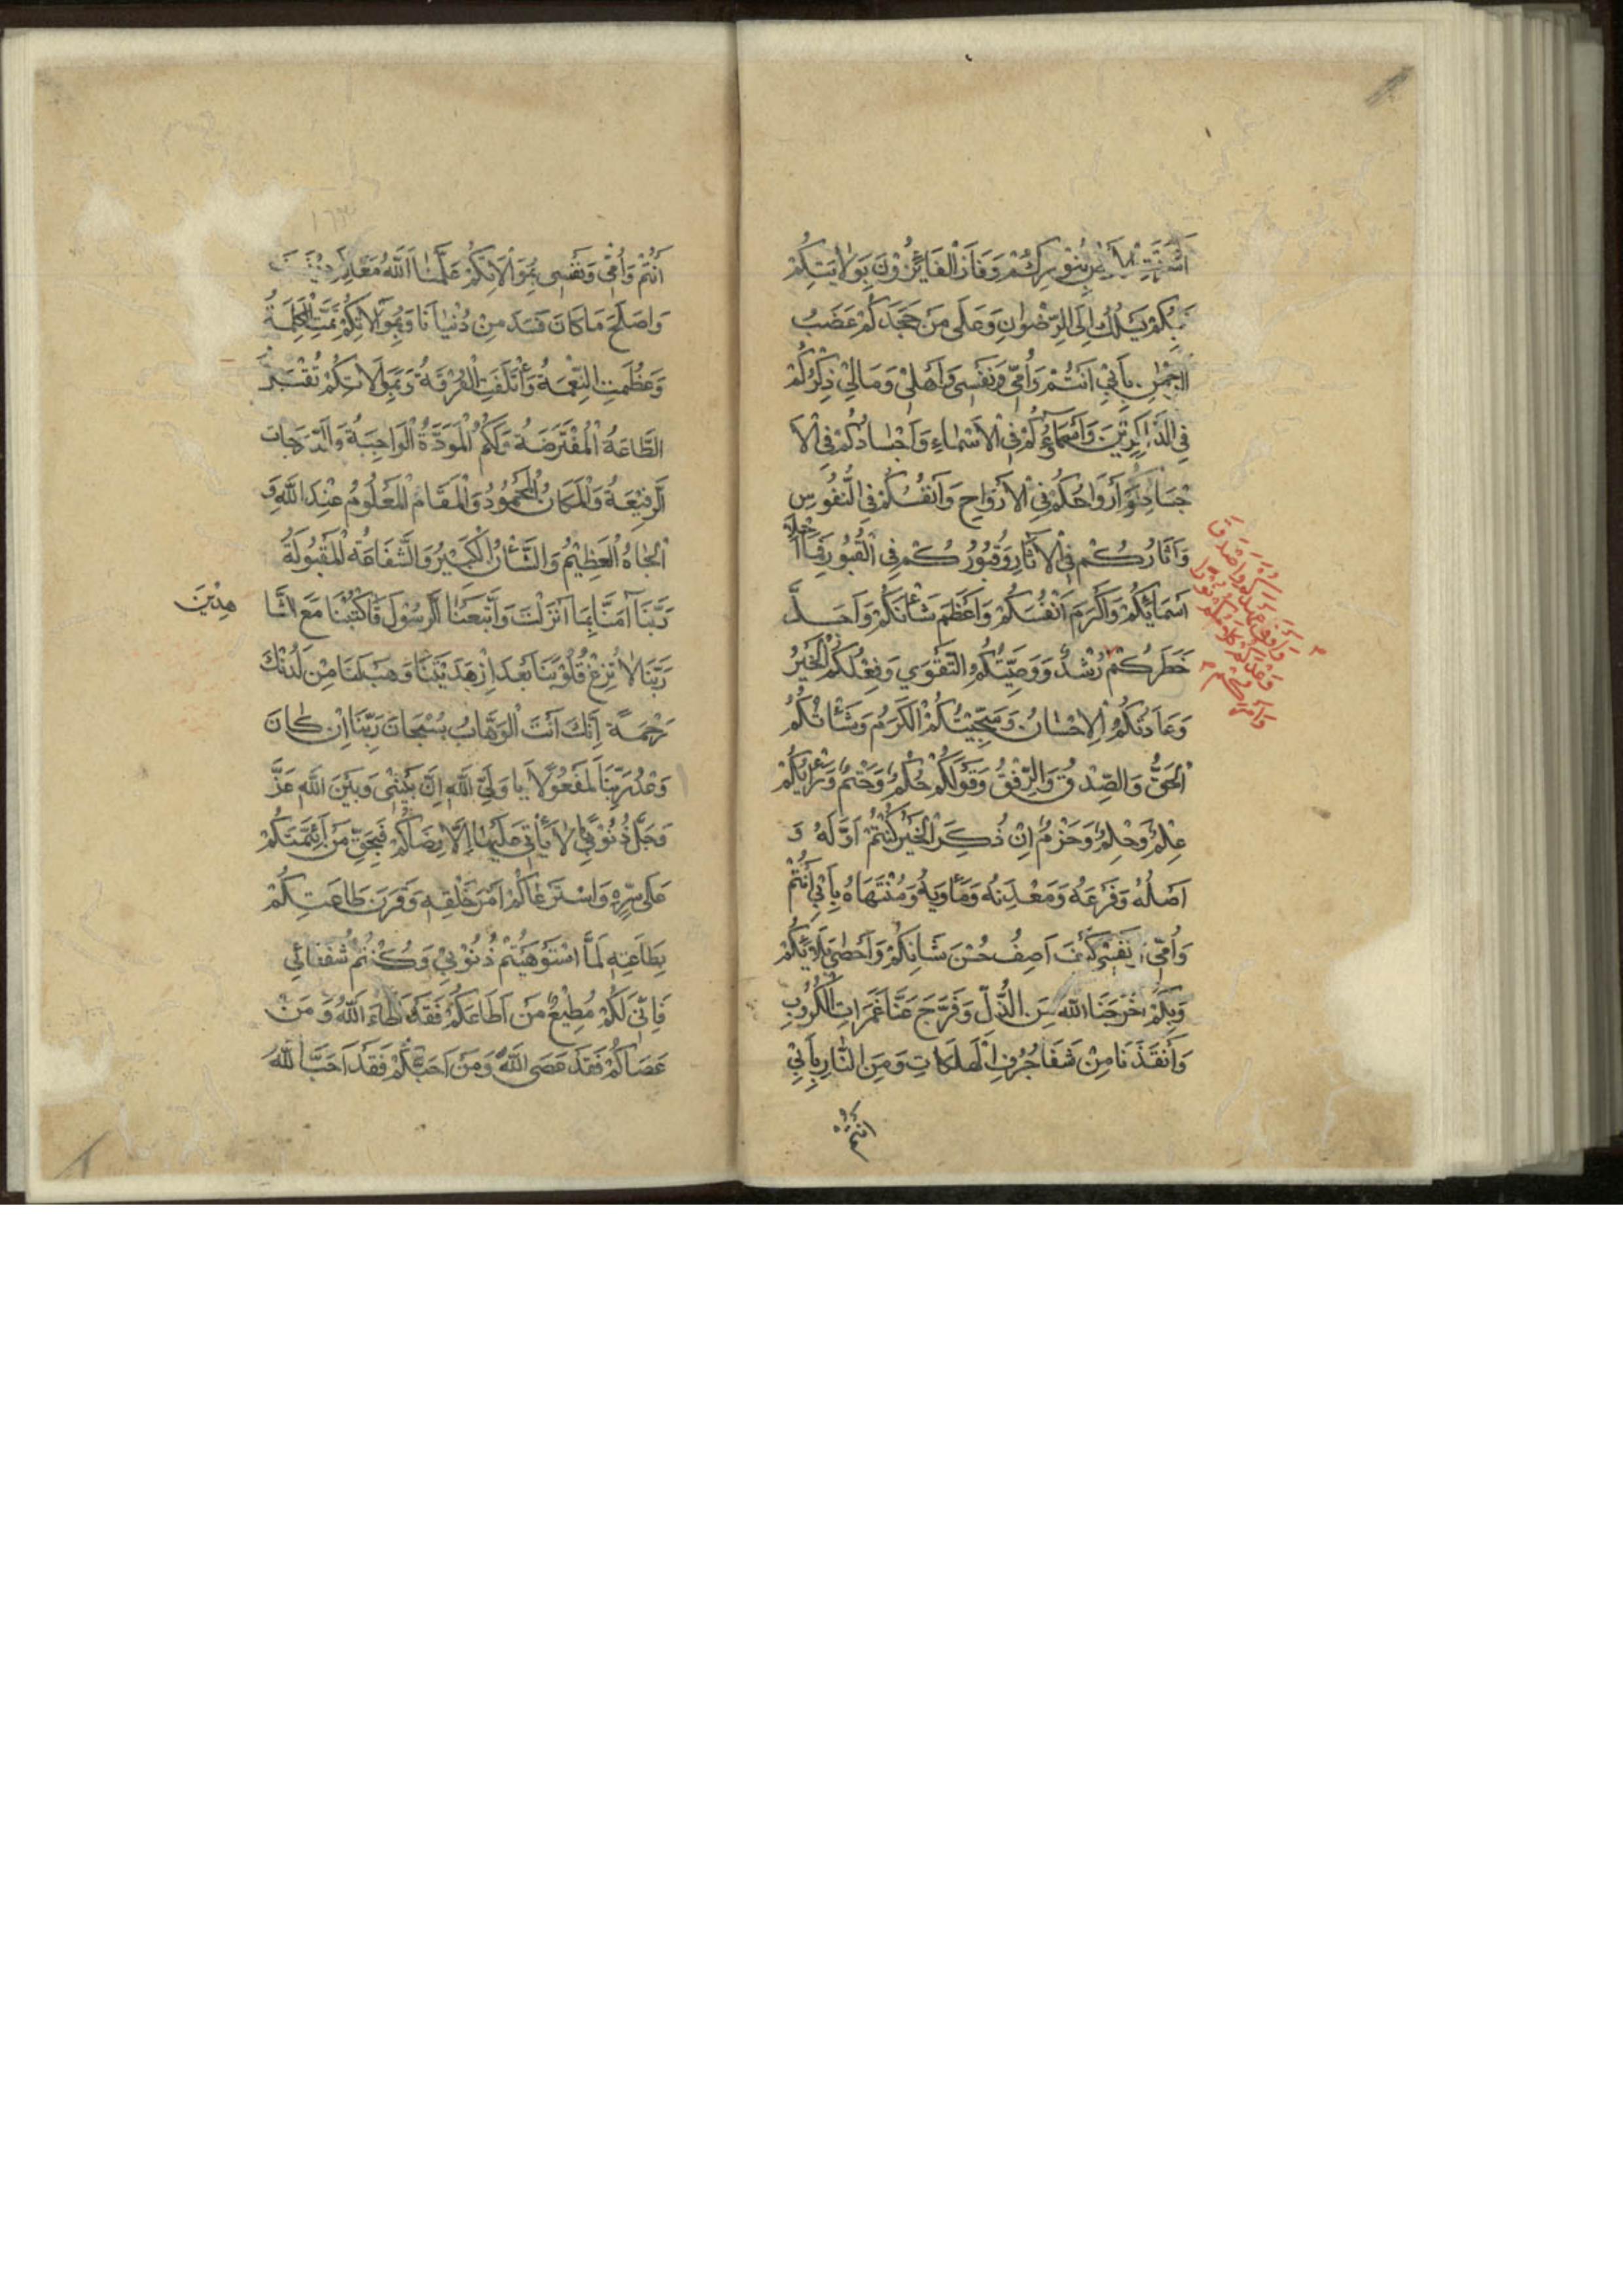 اَشْرَقَتِ الْاَرْضُ بِنُوْرِكُمْ وَفَازَ الْفَائِزُوْنَ بِوِلَايَتِكُمْ
بِكُمْ يُسْلَكُ اِلَى الرِّضْوٰانِ وَعَلٰى مَنْ جَحَدَكُمْ غَضَبُ
الرَّحْمٰنِ بِاَبِيْ اَنْتُمْ وَاُمّٖى وَنَفْسٖى وَاَهْلٖى وَمَالِيْ ذِكْرُكُمْ
فِي الذَّاكِرِيْنَ وَاَسْمَاؤُكُمْ فِي الْاَسْمٰاءِ وَاَجْسٰادُكُمْ فِي الْاَ
جْسَادِ وَاَرْوَاحُكُمْ فِي الْاَرْوَاحِ وَاَنْفُسُكُمْ فِي النُّفُوْسِ
وَاٰثَارُكُمْ فِي الْاٰثَارِ وَقُبُوْرُكُمْ فِي الْقُبُوْرِ فَمٰا اَحْلٰى
اَسْمَائَكُمْ وَاَكْرَمَ اَنْفُسَكُمْ وَاَعْظَمَ شَاْنَكُمْ وَاَجَلَّ
خَطَرَكُمْ رُشْدٌ وَوَصِيَّتُكُمُ التَّقْوٰي وَفِعْلُكُمُ الْخَيْرُ
وَعَادَتُكُمُ الْاِحْسٰانُ وَسَجِيَّتُكُمُ الْكَرَمُ وَشَاْنُكُمُ
الْحَقُّ وَالصِّدْقُ وَالرِّفْقُ وَقَوْلُكُمْ حُكْمٌ وَحَتْمٌ وَرَاْيُكُمْ
عِلْمٌ وَحِلْمٌ وَحَزْمٌ اِنْ ذُكِرَ الْخَيْرُ كُنْتُمْ اَوَّلَهُ وَ
اَصْلُهُ وَفَرْعَهُ وَمَعْدِنَهُ وَمَاْوٰيهُ وَمُنْتَهَاهُ بِاَبِيْ اَنْتُمْ
وَاُمّٖى وَنَفْسٖى كَيْفَ اَصِفُ حُسْنَ ثَنَائِكُمْ وَاُحْصٖى بَلَائِكُمْ
وَبِكُمْ اَخْرَجَنَا اللّٰهُ مِنَ الذُّلِّ وَفَرَّجَ عَنَّا غَمَرَاتِ الْكُرُوْبِ
وَاَنْقَذَنَا مِنْ شَفَا جُرُفِ الْهَلَكَاتِ وَمِنَ النَّارِ بِاَبِيْ
انتم
اَنْتُمْ وَاُمّٖى وَنَفْسٖى بِمُوَالَاتِكُمْ عَلَّمَنٰا اللّٰهُ مَعَالِمَ دِيْنِنَا
وَاَصْلَحَ مَا كَانَ فَسَدَ مِنْ دُنْيٰانَا وَبِمُوَالَاتِكُمْ تَمَّتِ الْكَلِمَةُ
وَعَظُمَتِ النِّعْمَةُ وَاْتَلَفَتِ الْفُرْقَةُ وَبِمُوَالَاتِكُمْ تُقْبَلُ
الطَّاعَةُ الْمُفْتَرَضَةُ وَلَكُمُ الْمَوَدَّةُ الْوَاجِبَةُ وَالدَّرَجَاتُ
الرَّفِيْعَةُ وَالْمَكَانُ الْمَحْمُوْدُ وَالْمَقَامُ الْمَعْلُوْمُ عِنْدَ اللّٰهِ وَ
الْجَاهُ الْعَظِيْمُ وَالشَّاْنُ الْكَبِيْرُ وَالشَّفَاعَةُ الْمَقْبُوْلَةُ
رَبَّنَا اٰمَنَّا بِمَا اَنْزَلْتَ وَاتَّبَعْنَا الرَّسُوْلَ فَاكْتُبْنَا مَعَ الشَّا
هِدِيْنَ
رَبَّنَا لَا تُزِغْ قُلُوْبَنَا بَعْدَ اِذْ هَدَيْتَنَا وَهَبْ لَنَا مِنْ لَدُنْكَ
رَحْمَةً اِنَّكَ اَنْتَ الْوَهَّابُ سُبْحَانَ رَبِّنَا اِنْ كٰانَ
وَعْدُ رَبِّنَا لَمَفْعُوْلًا يَا وَلِيَّ اللّٰهِ اِنَّ بَيْنٖى وَبَيْنَ اللّٰهِ عَزَّ
وَجَلَّ ذُنُوْبًا لَا يَاْتٖى عَلَيْهٰا اِلَّا رِضَاكُمْ فَبِحَقِّ مَنِ ائْتَمَنَكُمْ
عَلٰى سِرِّهٖ وَاسْتَرْعَاكُمْ اَمْرَ خَلْقِهٖ وَقَرَنَ طَاعَتَكُمْ
بِطَاعَتِهٖ لَمَّا اسْتَوْهَبْتُمْ ذُنُوْبِيْ وَكُنْتُمْ شُفَعَائِي
فَاِنّٖى لَكُمْ مُطِيْعٌ مَنْ اَطَاعَكُمْ فَقَدْ اَطَاعَ اللّٰهَ وَمَنْ
عَصَاكُمْ فَقَدْ عَصَى اللّٰهَ وَمَنْ اَحَبَّكُمْ فَقَدْ اَحَبَّ اللّٰهَ